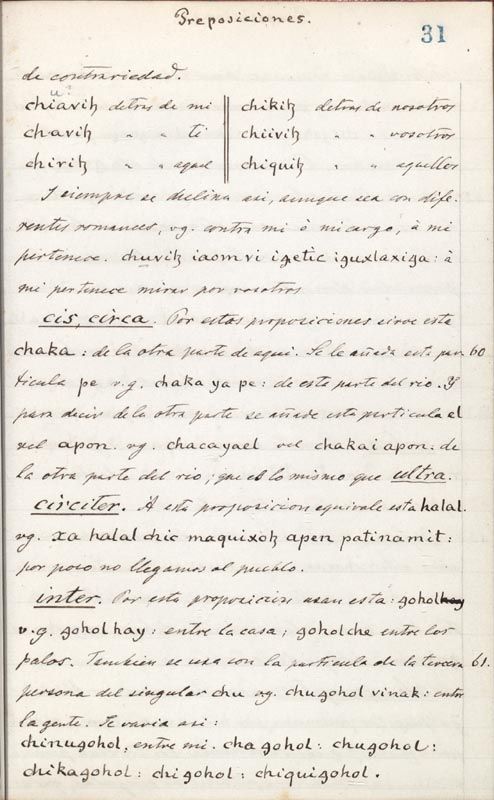 Preposiciones.
31
de contrariedad.
u
chiavih detras de mi chikih detras de nosotros
chavih " " ti chiivih " " vosotros
chirih " " aquel chiquih " " aquellos
I siempre se declina asi, aunque sea con dife-
rentes romances, vg. contra mi ò mi cargo, à mi
pertenece. chuvih iaom vi igetic iguxlaxiga: à
mi pertenece mirar por vosotros
cis, circa. Por estas proposiciones sirve esta
chaka: de la otra parte de aqui. Se le añada esta par 60
ticula pe v.g. chaka ya pe: de este parte del rio. Y
para decir de la otra parte se añade esta particula el
vel apon. vg. chacayael vel chakai apon: de
la otra parte del rio; que es lo mismo que ultra.
circiter. A esta proposicion equivale esta halal.
vg. xa halal chic maquixoh apen patinamit:
por poco no llegamos al pueblo.
inter. Por esta proposicion usan esta: gohol hay
v.g. gohol hay: entre la casa; gohol che entre los
palos. Tambien se usa con la particula de la tercera 61.
persona del singular chu vg. chugohol vinak: entre
la gente. Se varia asi:
chinugohol, entre mi. cha gohol: chugohol:
chikagohol: chigohol: chiquigohol.